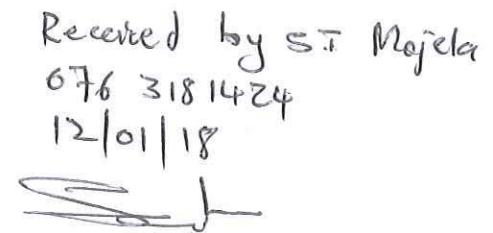 Received by S.I Mojela
076 3181424
12/01/18